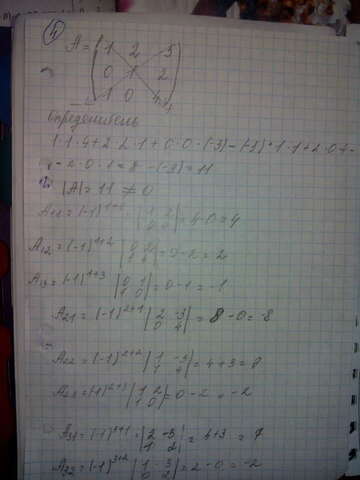 4
A = ( 1 2 -3
0 1 2
1 0 4 )
определитель
1·1·4+2·2·1+0·0·(-3)-(-3)·1·1+2·0·4-
-2·0·1=8-(-3)=11
|A|=11≠0
A11=(-1)^1+1 · |1 2; 0 4| = 4-0=4
A12=(-1)^1+2 |0 2; 1 4| = 0-2=2
A13=(-1)^1+3 |0 1; 1 0| = 0-1=-1
A21=(-1)^2+1 |2 -3; 0 4| = 8-0=-8
A22=(-1)^2+2 |1 -3; 1 4| = 4+3=
A23=(-1)^2+3 |1 2; 1 0| = 0-2=-2
|2 -3; 1 2| = 4+3=7
A32=(-1)^3+2 |1 -3; 0 2| = 2-0=-2